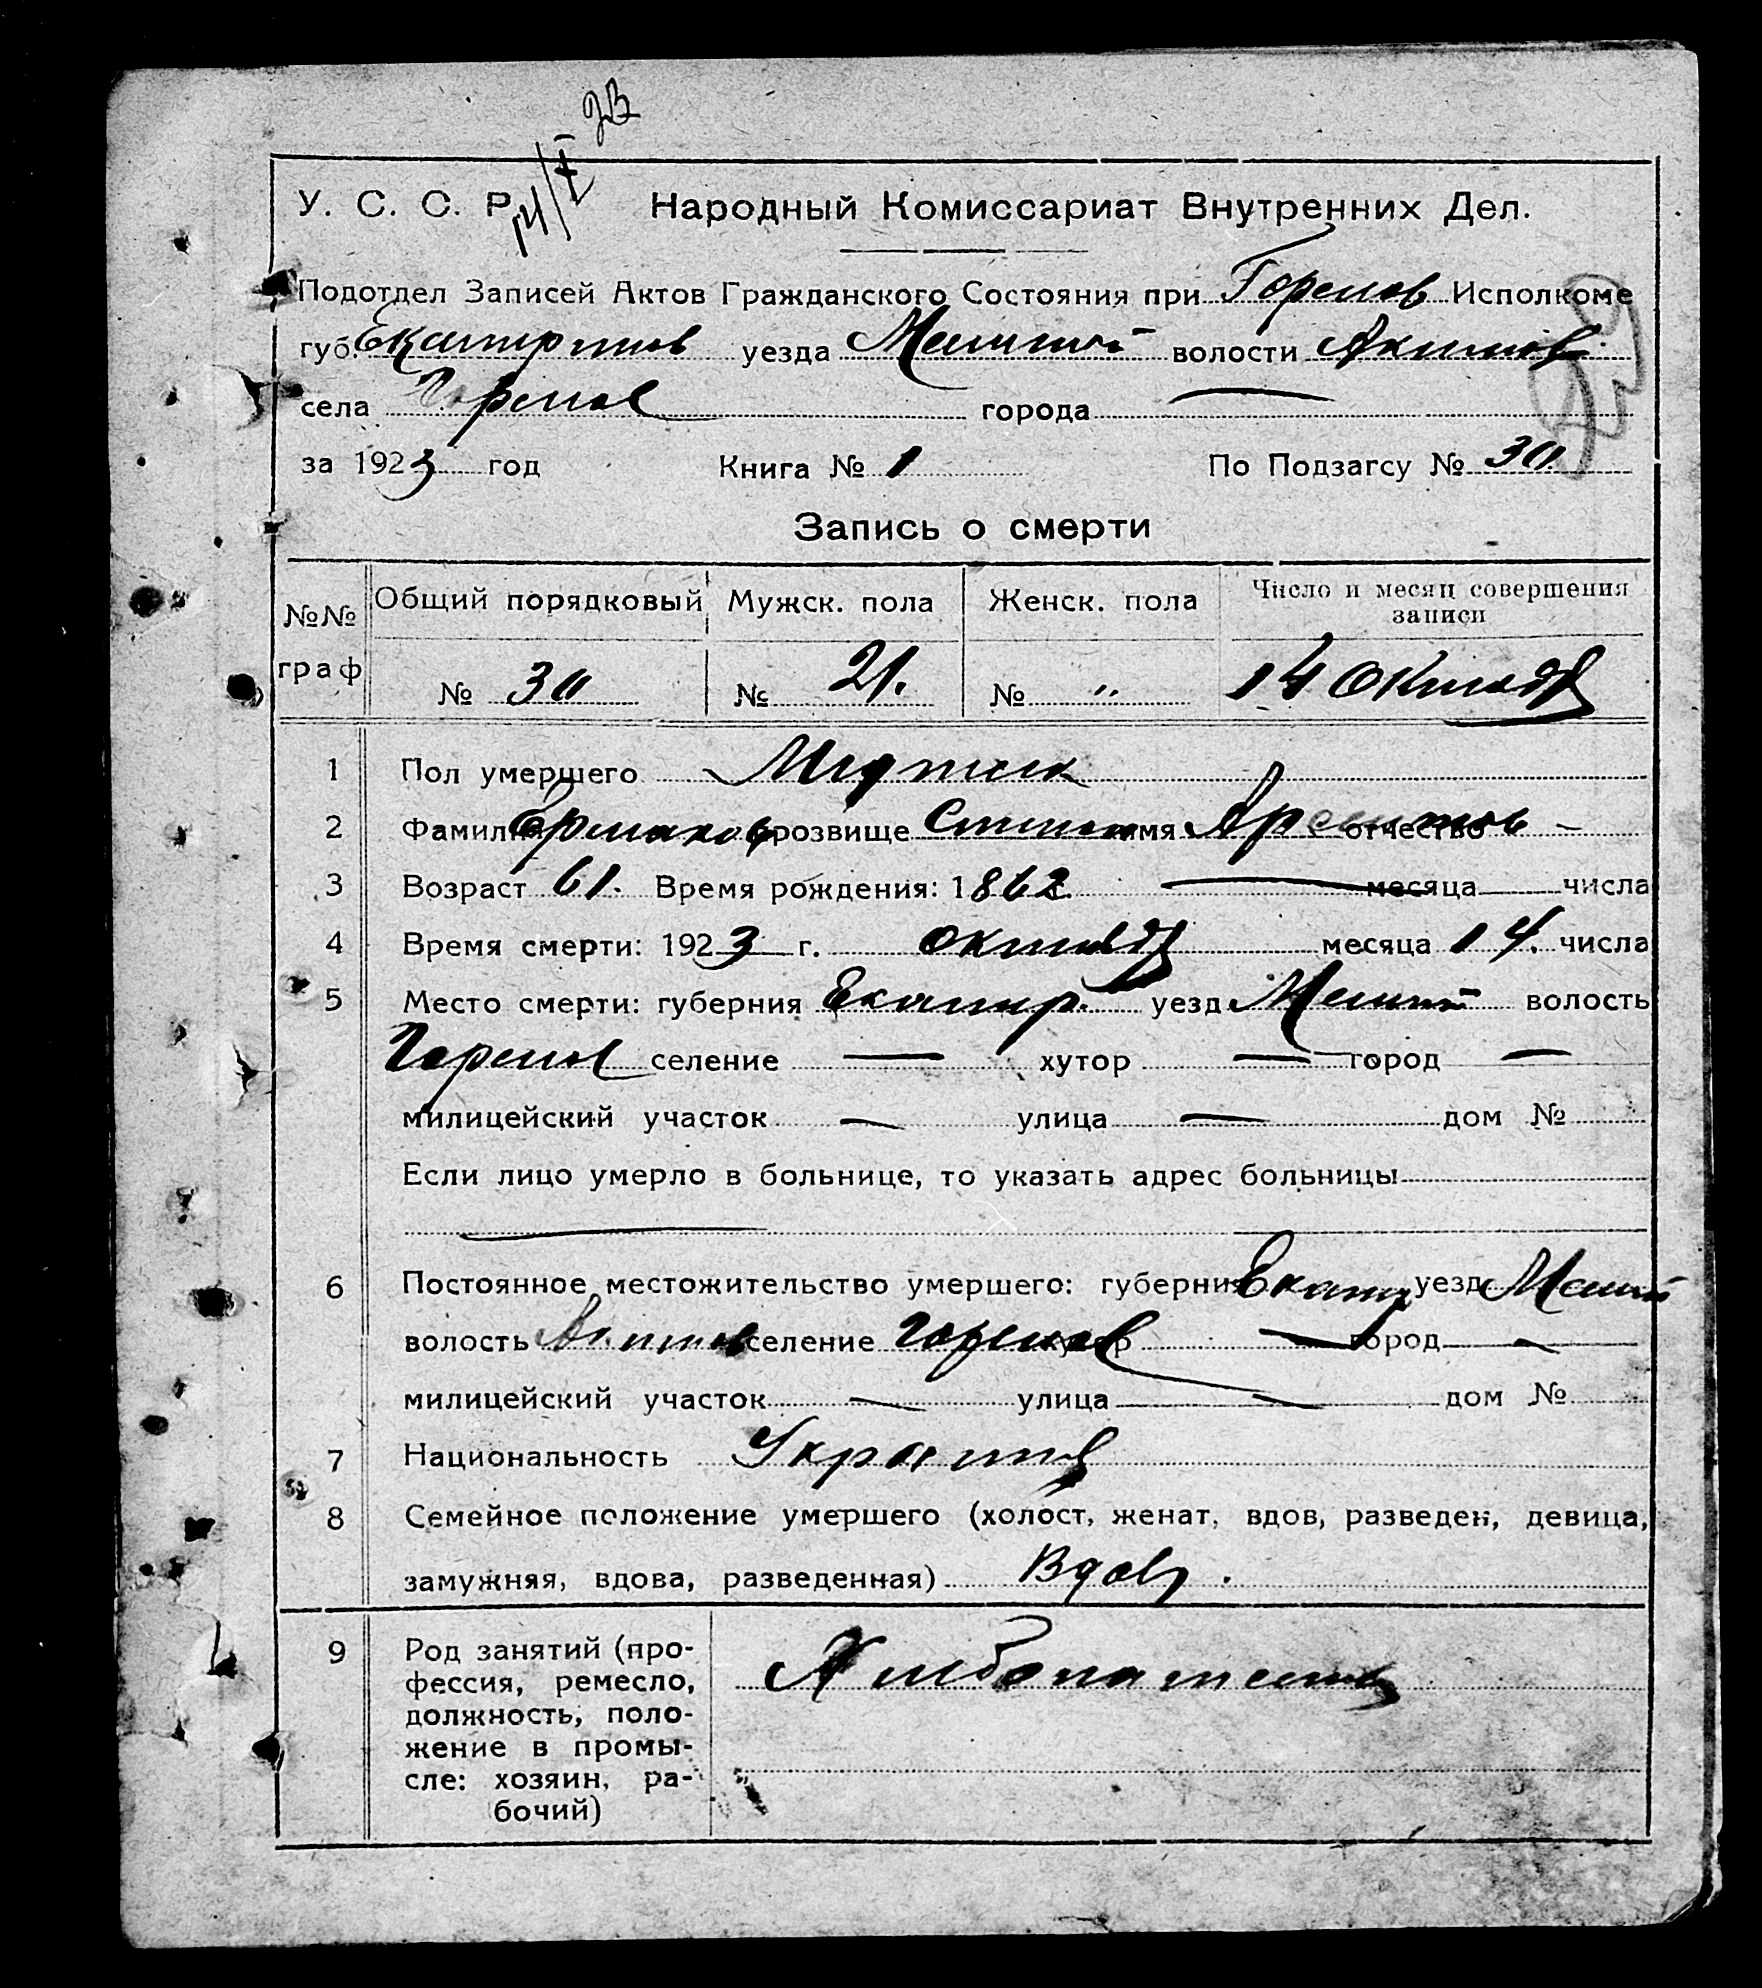 14/X 23
У. С. С. Р. Народный Комиссариат Внутренних Дел.
Подотдел Записей Актов Гражданского Состояния при Горелов Исполкоме
губ. уезда волости Акимов
села Горелое города —
за 1923 год Книга № 1 По Подзагсу № 30
Запись о смерти
№№ граф Общий порядковый Мужск. пола Женск. пола Число и месяц совершения записи
№ 30 № 21. № „ 14 Октября
1 Пол умершего Мужской
2 Фамилия Ермаков прозвище Степан имя отчество —
3 Возраст 61. Время рождения: 1862 г. — месяца числа
4 Время смерти: 1923 г. октября месяца 14. числа
5 Место смерти: губерния Екатер. уезд Мелит волость
Горелов селение — хутор — город —
милицейский участок — улица — дом №
Если лицо умерло в больнице, то указать адрес больницы
—
6 Постоянное местожительство умершего: губерния Екатер уезд Мелит
волость Акимов селение Горелое хутор — город —
милицейский участок — улица — дом №
7 Национальность
8 Семейное положение умершего (холост, женат, вдов, разведен, девица,
замужняя, вдова, разведенная) Вдов.
9 Род занятий (про-
фессия, ремесло,
должность, поло-
жение в промы-
сле: хозяин, ра-
бочий)